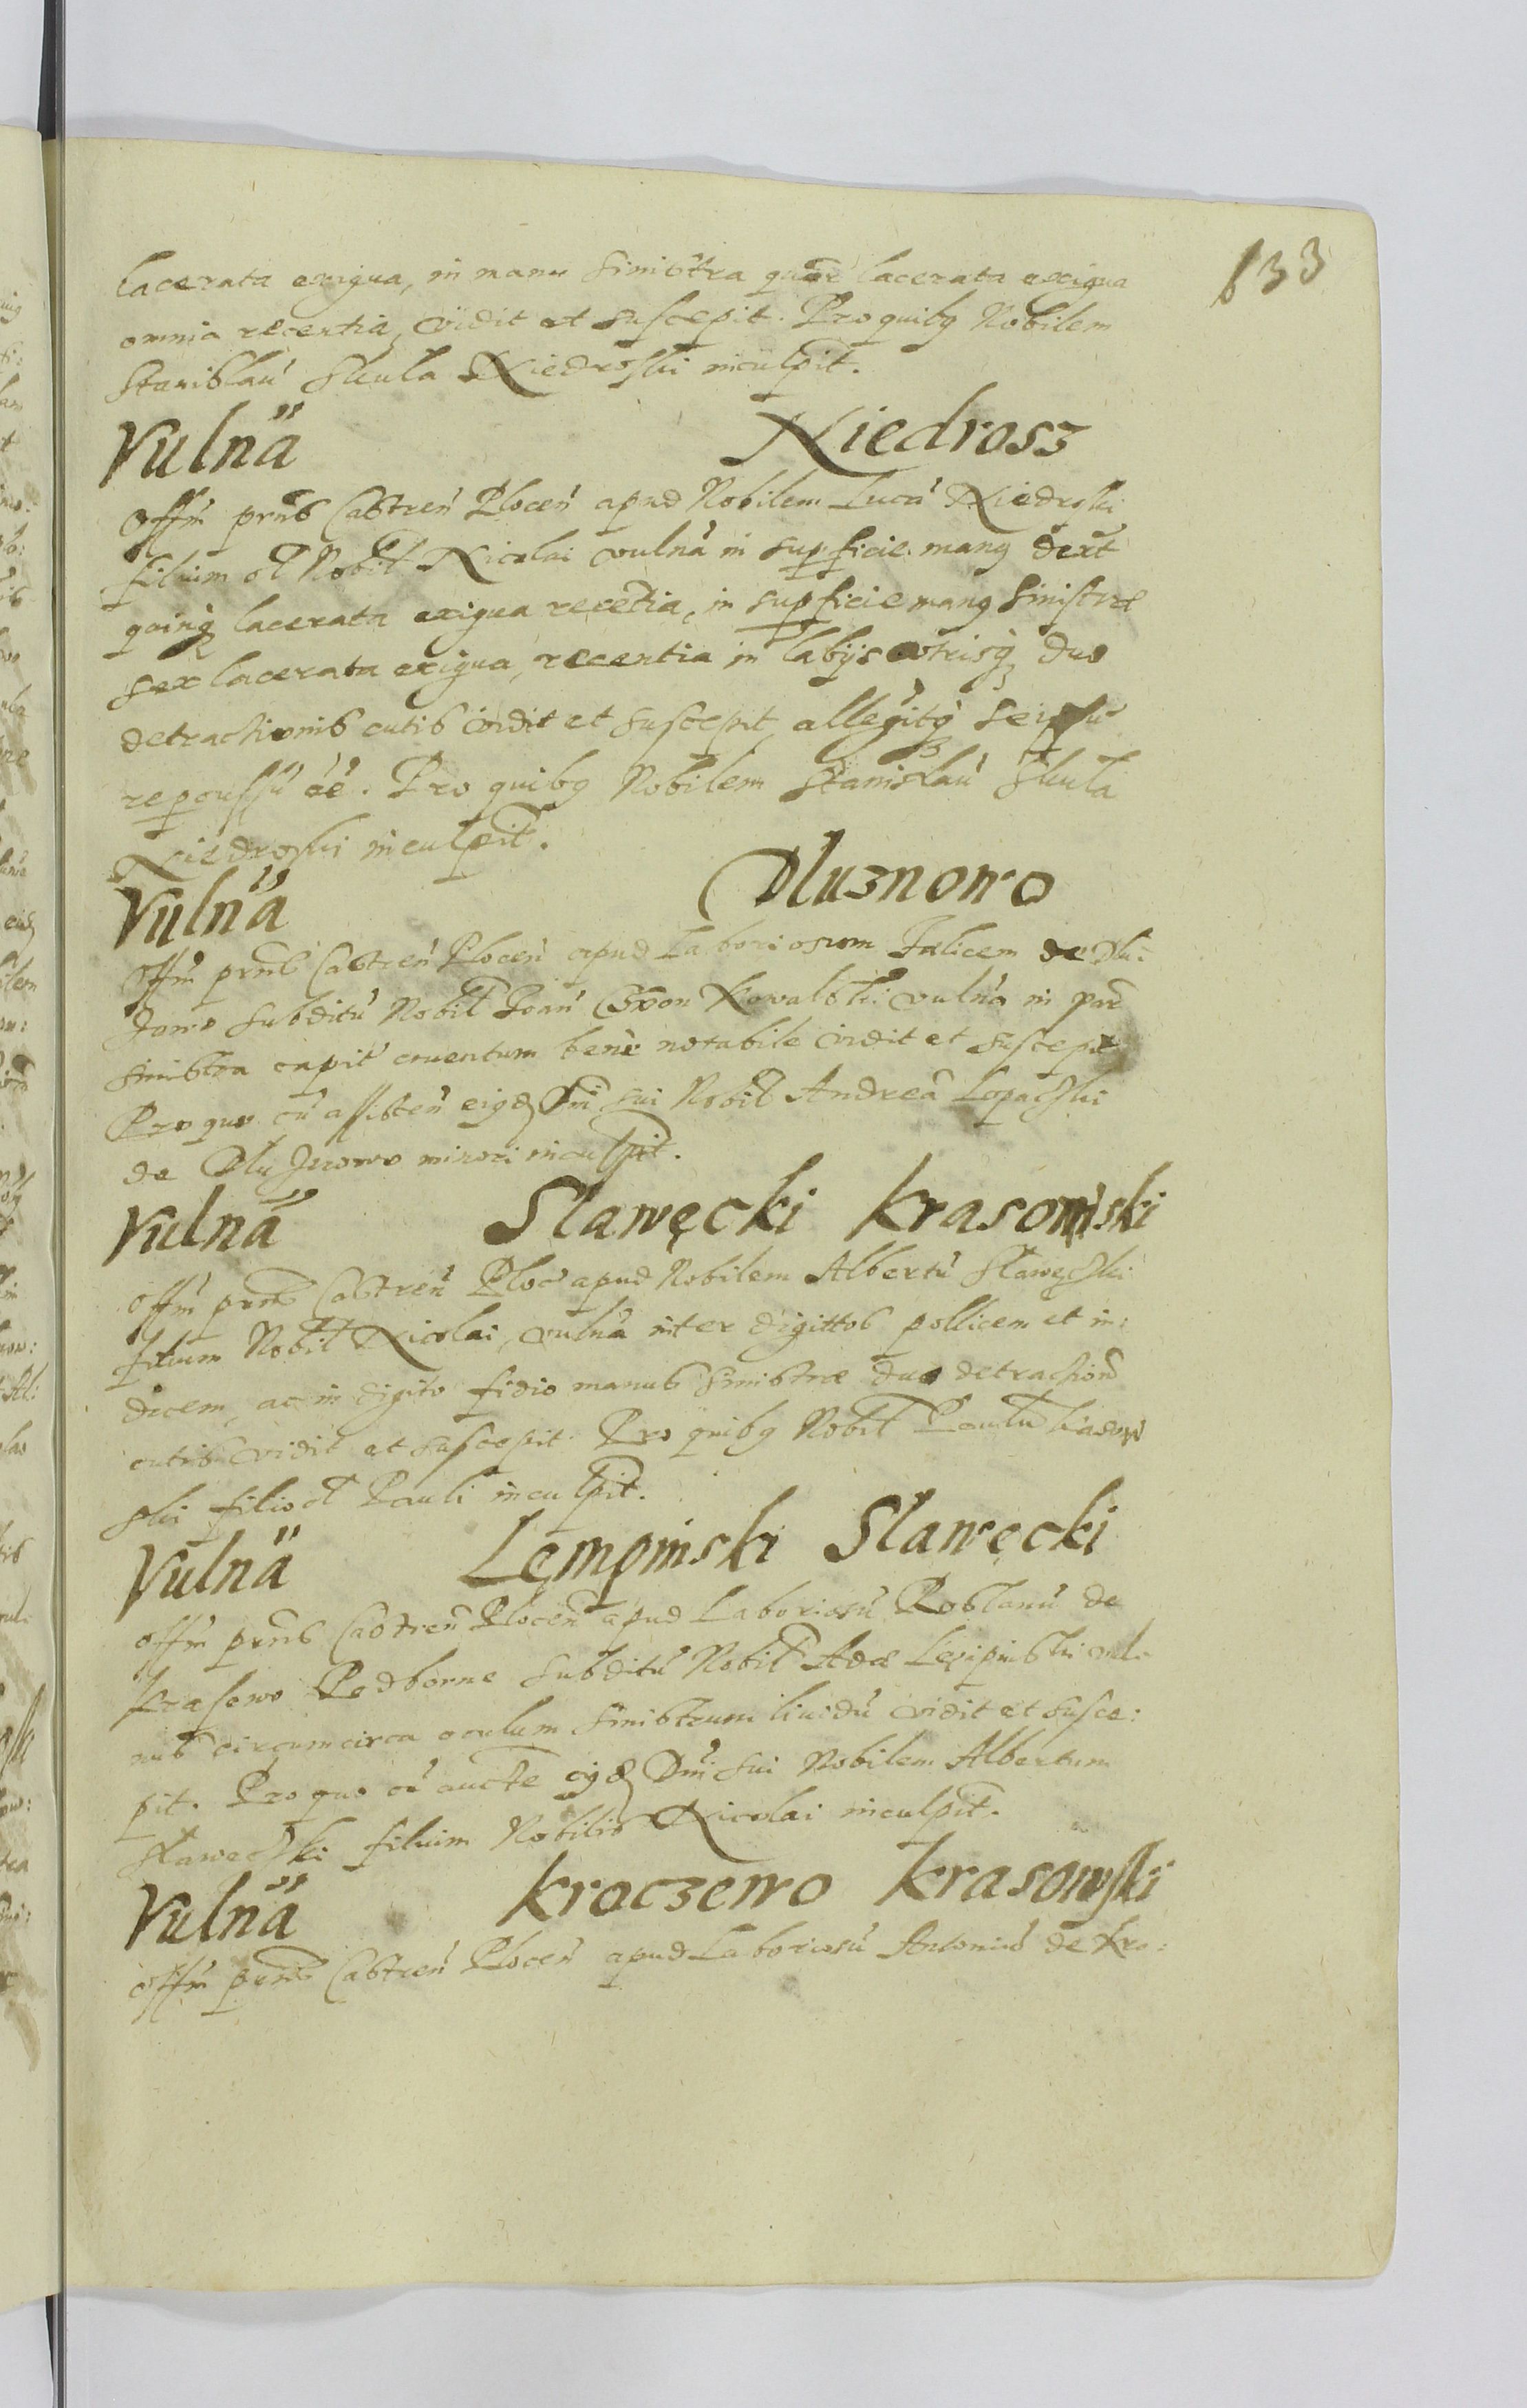 633
lacerata exigua, in manu sinistra quãr lacerata exigua
omnia recentia, vidit et suscepit. Pro quibq Nobilem
Stanislaũ Skula Niedroski inculpit.
Vulnã Niedrosz
Offm prns Castreñ Ploceñ apud Nobilem Lucã Niedroski
filium ol Nobil Nicolai vulnã in supficie manq dext
quinq lacerata exigua recẽtia, in supficie manq sinistræ
sex lacerata exigua, recentia in labijs utrisq duo
detrachionis cutis vidit et suscepit, allegitq se ipsũ
repoussũ ẽẽ. Pro quibq Nobilem Stanislaũ Skula
Niedroski inculpit.
Vulnã Dluznowo
Offm prns Castreñ Ploceñ apud Laboriosum Falicem de Dlu:
znowo subditũ Nobil Joañ Kowalski vulnã in par
sinistra capit cruentum bene notabile vidit et suscepit
Pro quo cũ assisteñ eiqd Dni sui Nobil Andreã Lopacski
de Dluznowo minori inculpit.
Vulnã Slawęcki Krasowski
Offm prns Castreñ Ploc apud Nobilem Albertũ Slawęcski
filium Nobil Nicolai, vulnã inter digittos pollicem et in:
dicem, ac in digito fidio manus sinistræ duo detrachioñ
cutis vidit et suscepit. Pro quibq Nobil Paulũ Krasow
ski filio ol Pauli inculpit.
Vulnã Lempinski Slawęcki
Offm prns Castreñ Ploceñ apud Laboriosũ de
Krasowo Podborne subditũ Nobil Adæ Lępinski vul-
nus circumcirca oculum sinistrum liuidũ vidit et susce:
pit. Pro quo cũ aucte eiqd Dni sui Nobilem Albertum
Slawecski filium Nobilis Nicolai inculpit.
Vulnã Kroczewo Krasowski
Offm prns Castreñ Ploceñ apud Laboriosũ Antoniũ de Kro: